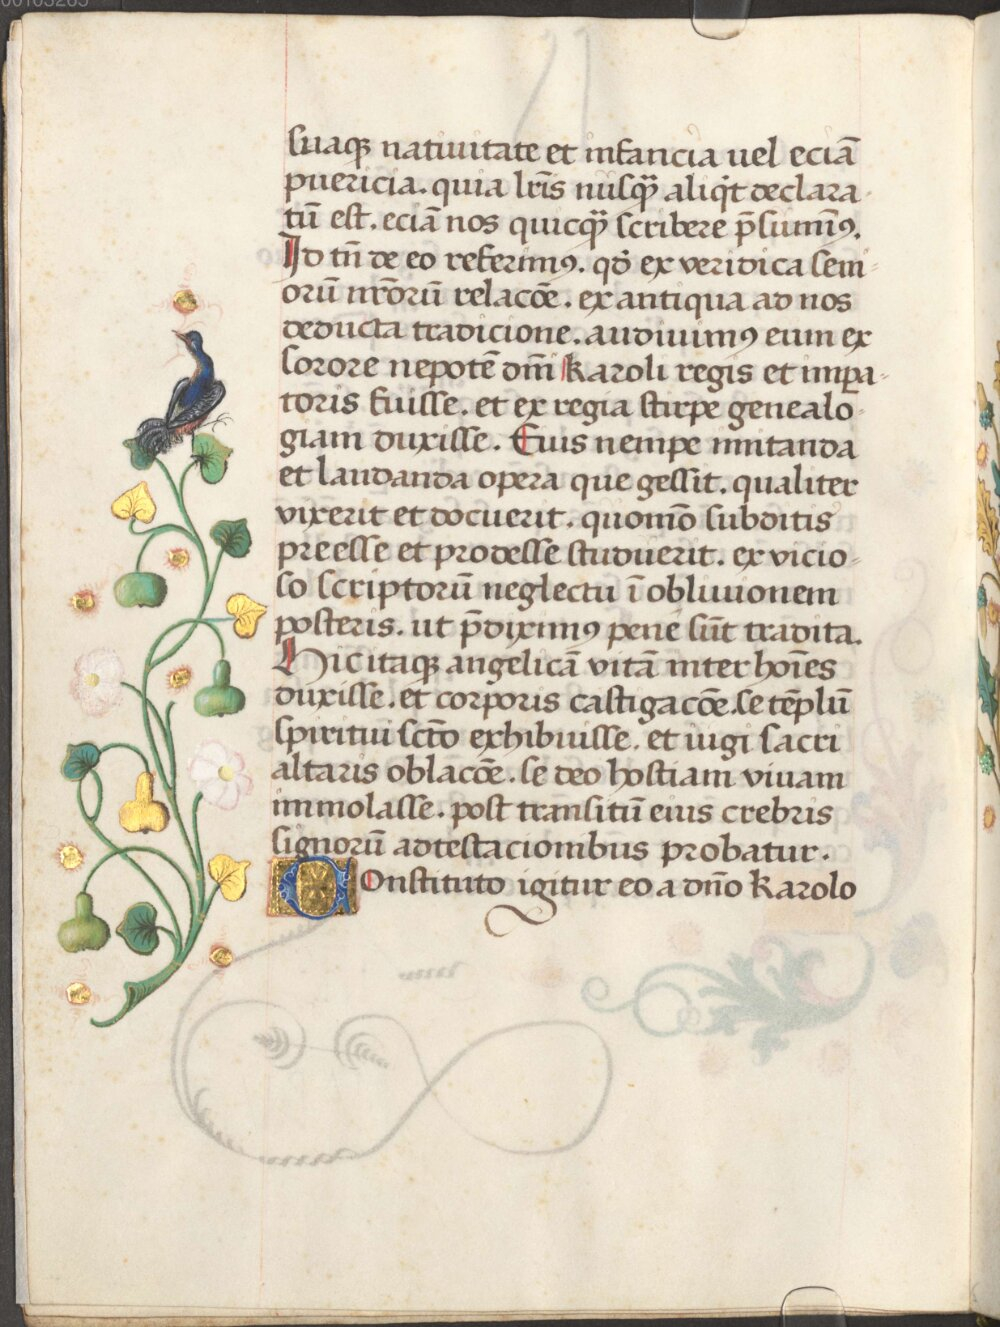 suaqꝫ natiuitate et infancia uel eciã
puericia. quia lr̃is nusqꝫ̃ aliqͥt declara-
tũ est. eciã nos quicqꝫ̃ scribere p̃sumimꝯ.
Id tñ de eo referimꝯ. qd̾ ex veridica seni-
orũ nr̃orũ relacõe. ex antiqua ad nos
deducta tradicione. audiuimꝯ eum ex
sorore nepotẽ dñi karoli regis et impa-
toris fuisse. et ex regia stirpe genealo-
giam duxisse. Eius nempe imitanda
et laudanda opera que gessit. qualiter
vixerit et docuerit. quomõ subditis
preesse et prodesse studuerit. ex vicio-
so scriptorũ neglectu ĩ obliuionem
posteris. ut p̃diximꝯ pene sũt tradita.
Hic itaqꝫ angelicã vitã inter hoĩes
duxisse. et corporis castigacõe. se tẽplũ
spiritui sct̃o exhibuisse. et iugi sacri
altaris oblacõe. se deo hostiam viuam
immolasse. post transitũ eius crebris
signorũ adtestacionibus probatur.
COnstituto igitur eo a dño Karolo